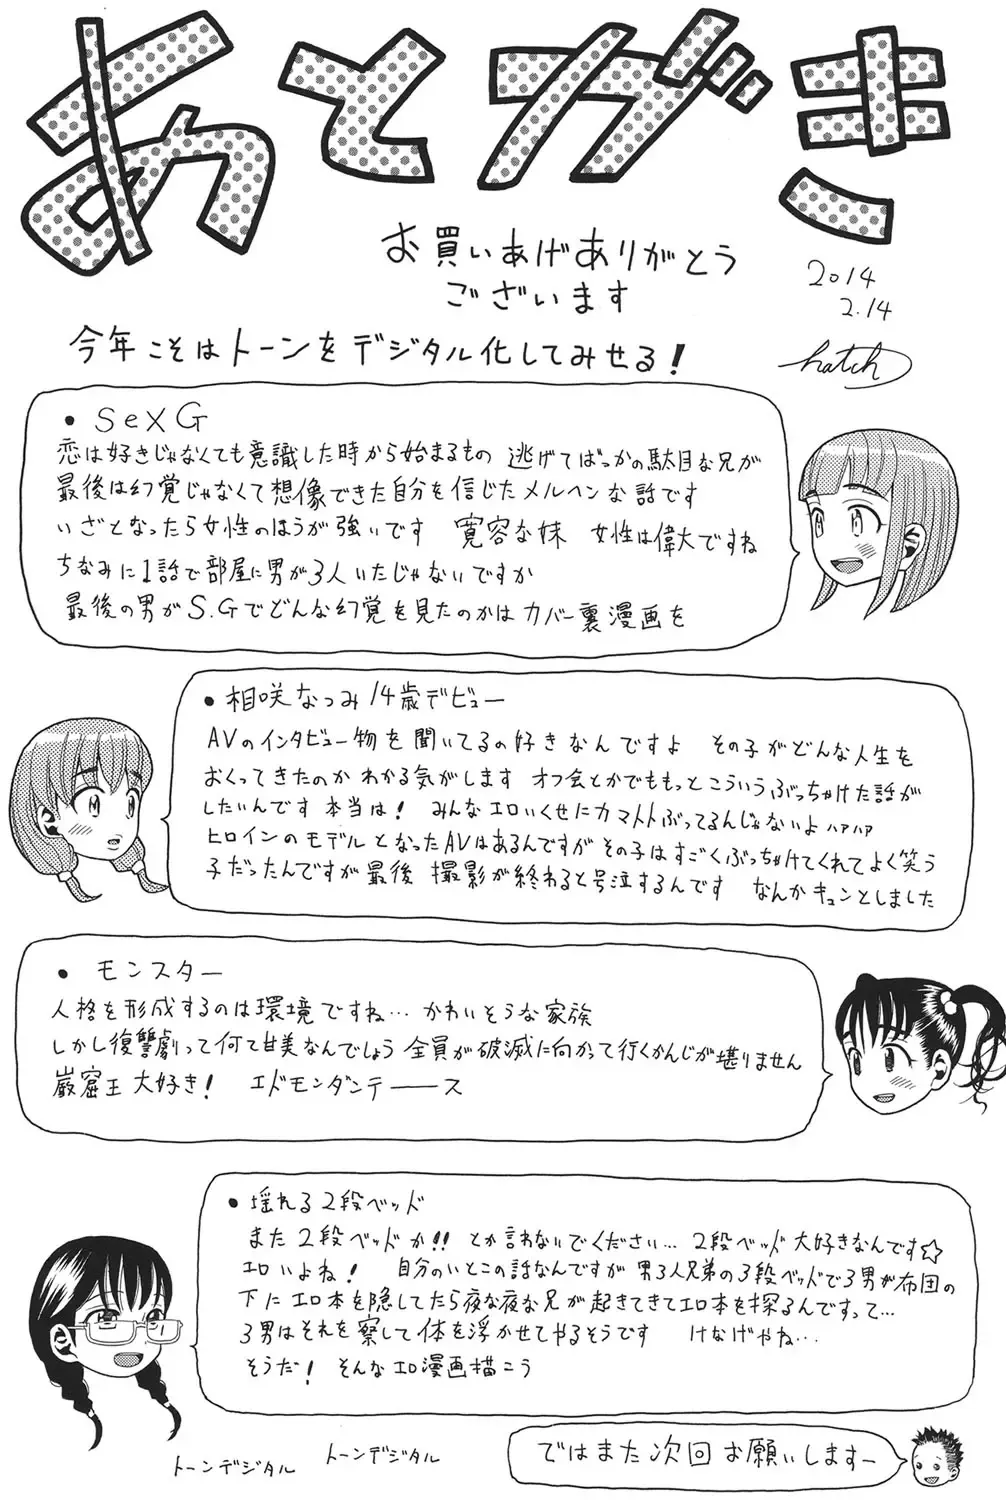 あとがき
お買いあげありがとう
ございます
2014
2.14
hatch
今年こそはトーンをデジタル化してみせる!
• SeX G
恋は好きじゃなくても意識した時から始まるもの 逃げてばっかの駄目な兄が
最後は幻覚じゃなくて想像できた自分を信じたメルヘンな話です
いざとなったら女性のほうが強いです 寛容な妹 女性は偉大ですね
ちなみに1話で部屋に男が3人いたじゃないですか
最後の男がS.Gでどんな幻覚を見たのかはカバー裏漫画を
• 相咲なつみ14歳デビュー
AVのインタビュー物を聞いてるの好きなんですよ その子がどんな人生を
おくってきたのかわかる気がします オフ会とかでももっとこういうぶっちゃけた話が
したいんです 本当は! みんなエロいくせにカマトトぶってるんじゃないよハァハァ
ヒロインのモデルとなったAVはあるんですがその子はすごくぶっちゃけてくれてよく笑う
子だったんですが最後 撮影が終わると号泣するんです なんかキュンとしました
• モンスター
人格を形成するのは環境ですね… かわいそうな家族
しかし復讐劇って何て甘美なんでしょう 全員が破滅に向かって行くかんじが堪りません
巌窟王大好き! エドモンダンテーース
• 揺れる2段ベッド
また2段ベッドか!! とか言わないでください… 2段ベッド大好きなんです☆
エロいよね! 自分のいとこの話なんですが男3人兄弟の3段ベッドで3男が布団の
下にエロ本を隠してたら夜な夜な兄が起きてきてエロ本を探るんですって…
3男はそれを察して体を浮かせてやるそうです けなげやね…
そうだ! そんなエロ漫画描こう
トーンデジタル
トーンデジタル
ではまた次回お願いしますー